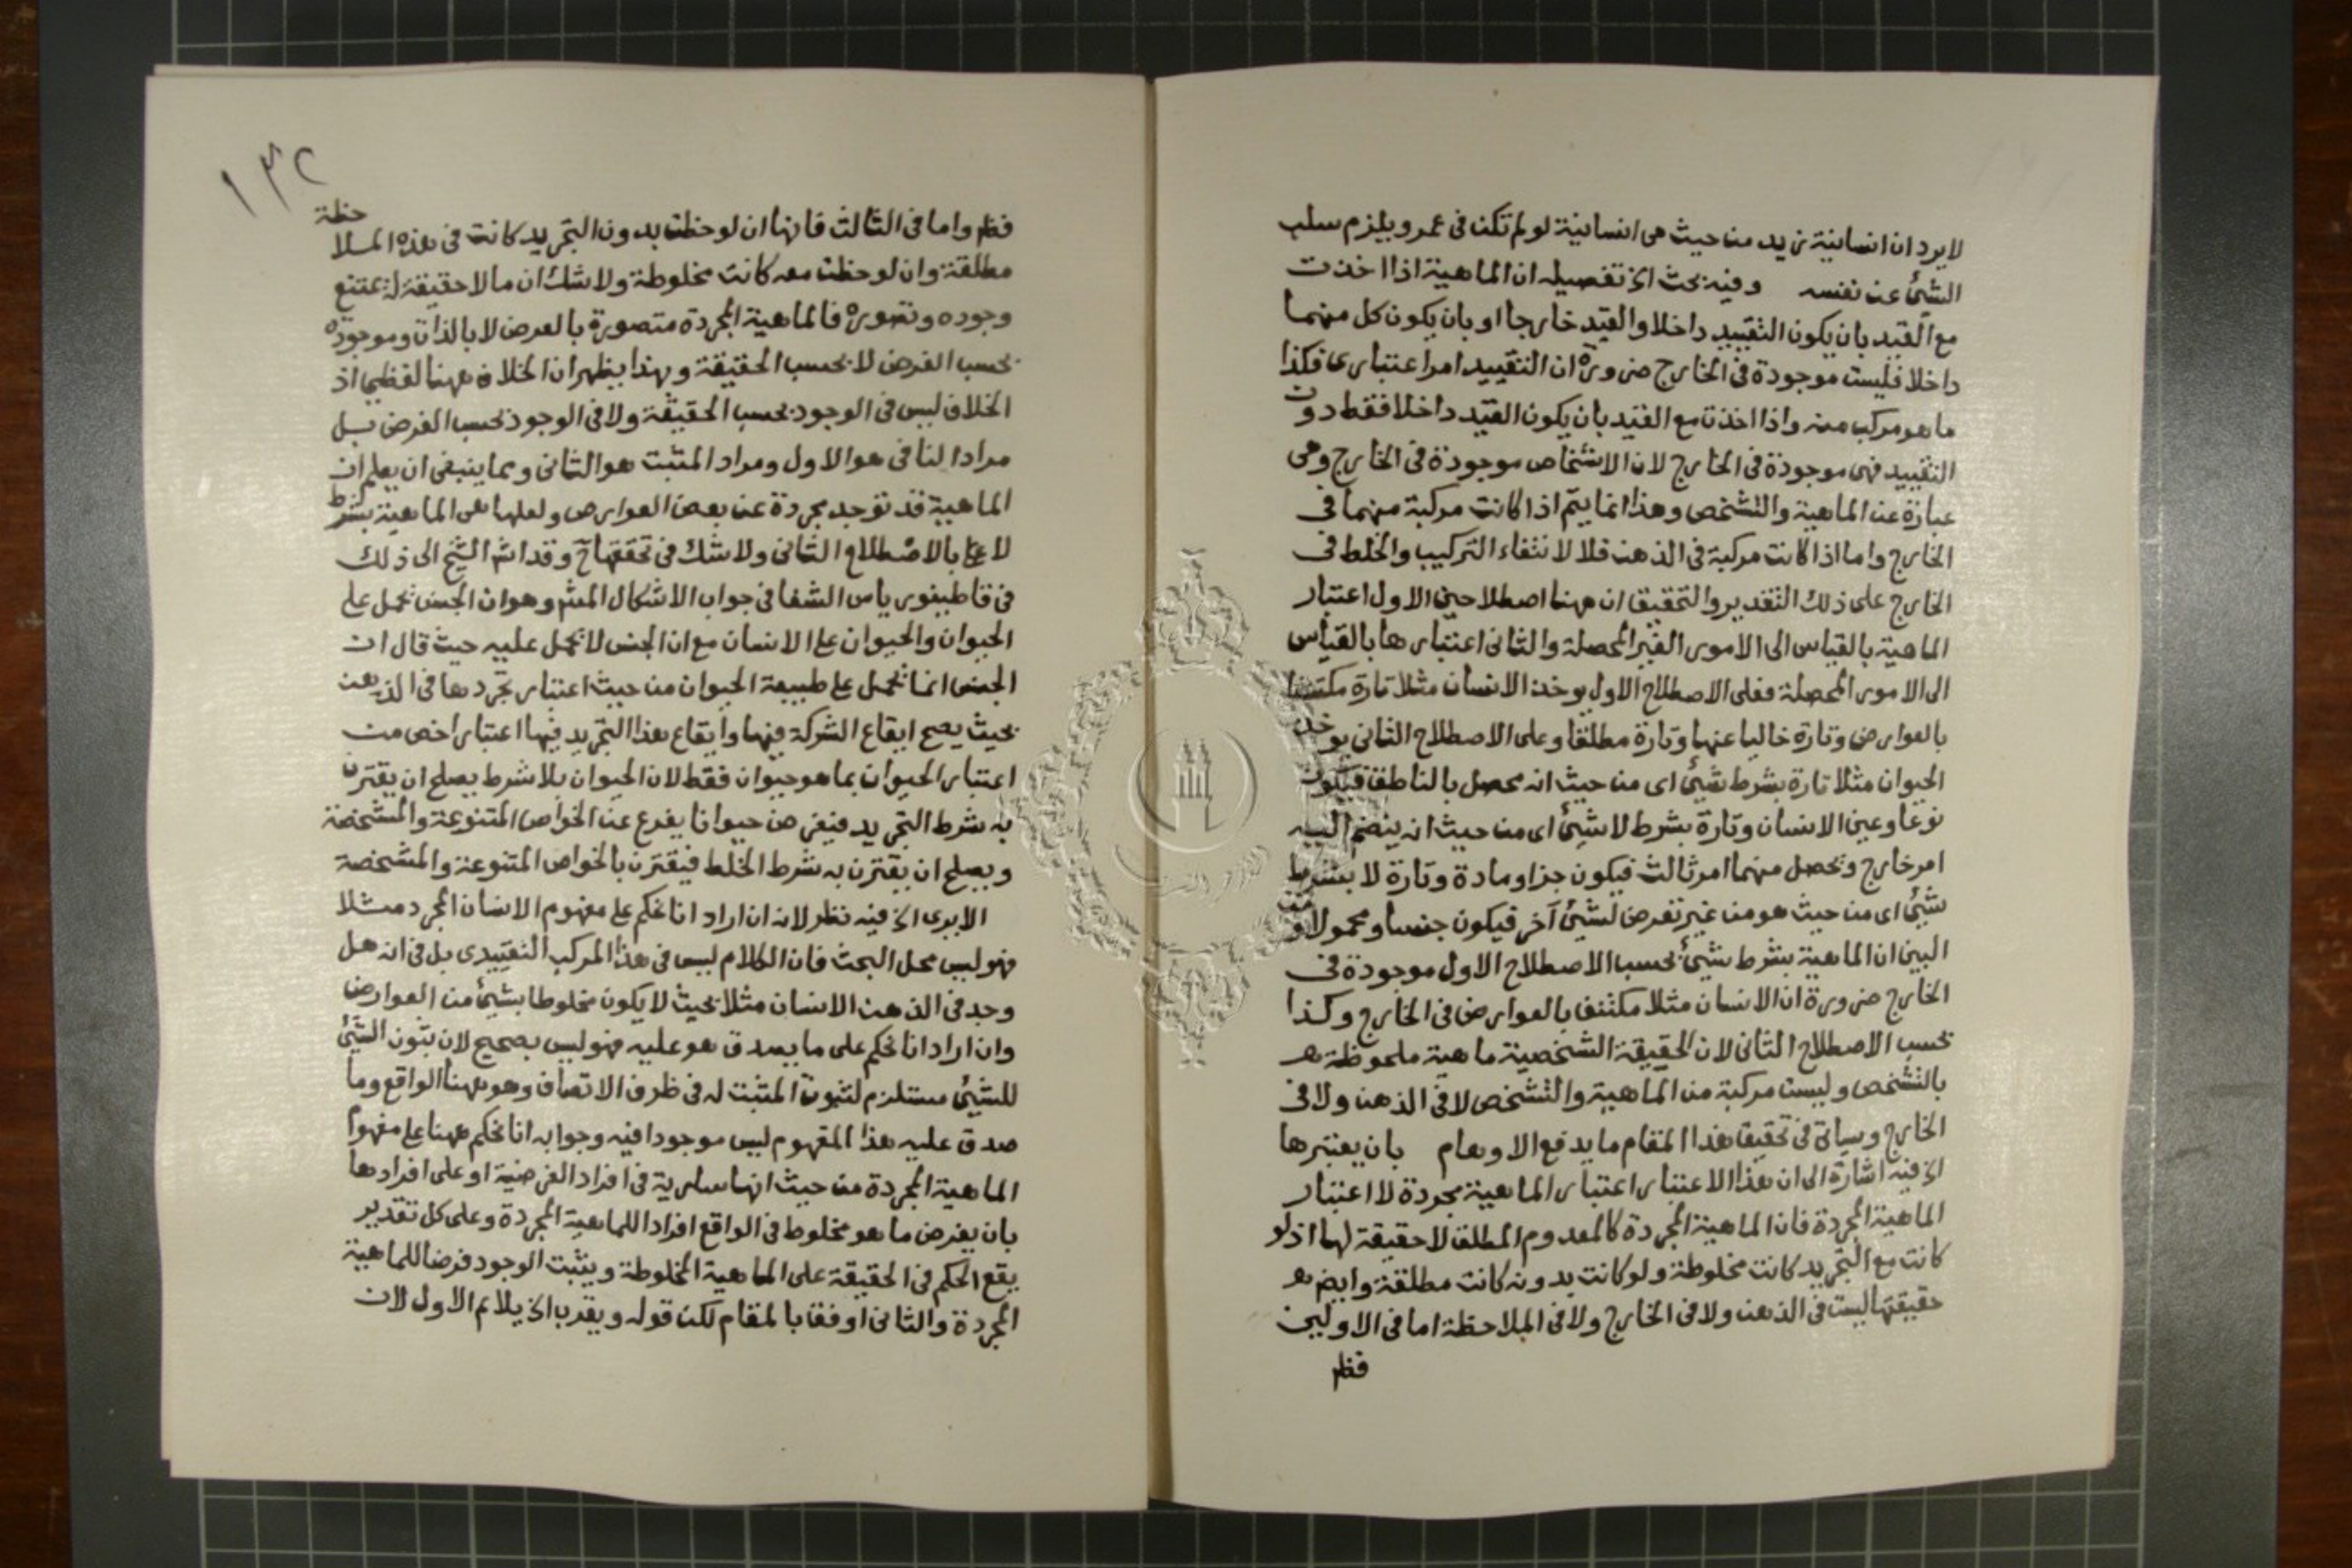 لا يرد ان انسانية زيد من حيث هي انسانية لو لم تكن في عمرو يلزم سلب
الشيئ عن نفسه وفيه بحث الخ تفصيله ان الماهية اذا اخذت
مع القيد بان يكون التقييد داخلا والقيد خارجا او بان يكون كل منهما
داخلا فليست موجودة في الخارج ضرورة ان التقييد امر اعتباري فكذا
ما هو مركب منه واذا اخذت مع القيد بان يكون القيد داخلا فقط دون
التقييد فهي موجودة في الخارج لان الاشخاص موجودة في الخارج وهي
عبارة عن الماهية والتشخص وهذا انما يتم اذا كانت مركبة منهما في
الخارج واما اذا كانت مركبة في الذهن فلا لانتفاء التركيب والخلط في
الخارج على ذلك التقدير والتحقيق ان ههنا اصطلاحين الاول اعتبار
الماهية بالقياس الى الامور الغير المحصلة والثاني اعتبارها بالقياس
الى الامور المحصلة فعلى الاصطلاح الاول يوخذ الانسان مثلا تارة مكتنفا
بالعوارض وتارة خاليا عنها وتارة مطلقا وعلى الاصطلاح الثاني يوخذ
الحيوان مثلا تارة بشرط شيئ اى من حيث انه محصل بالناطق فيكون
نوعا وعين الانسان وتارة بشرط لا شيئ اى من حيث انه ينضم اليه
امر خارج وتحصل منهما امر ثالث فيكون جزا ومادة وتارة لا بشرط
شيئ اى من حيث هو من غير تعرض لشيئ آخر فيكون جنسا ومحمولا ومن
البين ان الماهية بشرط شيئ بحسب الاصطلاح الاول موجودة في
الخارج ضرورة ان الانسان مثلا مكتنف بالعوارض في الخارج وكذا
بحسب الاصطلاح الثاني لان الحقيقة الشخصية ماهية ملحوظة هـ
بالتشخص وليست مركبة من الماهية والتشخص لا في الذهن ولا في
الخارج وسياتي في تحقيق هذا المقام ما يدفع الاوهام بان يعتبرها
الخ فيه اشارة الى ان هذا الاعتبار اعتبار الماهية مجردة لا اعتبار
الماهية المجردة فان الماهية المجردة كالمعدوم المطلق لا حقيقة لها اذ لو
كانت مع التجريد كانت مخلوطة ولو كانت بدونه كانت مطلقة وايضا هـ
حقيقتها ليست في الذهن ولا في الخارج ولا في الملاحظة اما في الاولين
فظم
١٣٢
فظم واما في الثالث فانها ان لوحظت بدون التجريد كانت في هذه الملاحظة
مطلقة وان لوحظت معه كانت مخلوطة ولا شك ان ما لا حقيقة له يمتنع
وجوده وتصوره فالماهية المجردة متصورة بالعرض لا بالذات وموجودة
بحسب الفرض لا بحسب الحقيقة وبهذا يظهر ان الخلاف ههنا لفظي اذ
الخلاف ليس في الوجود بحسب الحقيقة ولا في الوجود بحسب الفرض بل
مراد النافي هو الاول ومراد المثبت هو الثاني ومما ينبغي ان يعلم ان
الماهية قد توجد مجردة عن بعض العوارض ولعلها هي الماهية بشرط
لا بالاصطلاح الثاني ولا شك في تحققها ح وقد اشر الشيخ الى ذلك
في قاطيغورياس الشفا في جواب الاشكال المش وهو ان الجنس يحمل على
الحيوان والحيوان على الانسان مع ان الجنس لا يحمل عليه حيث قال ان
الجنس انما يحمل على طبيعة الحيوان من حيث اعتبار تجردها في الذهن
بحيث يصح ايقاع الشركة فيها وايقاع هذا التجريد فيها اعتبار اخص من
اعتبار الحيوان بما هو حيوان فقط لان الحيوان بلا شرط يصلح ان يقترن
به شرط التجريد فيفرض حيوانا يفرع عن الخواص المتنوعة والمشخصة
ويصلح ان يقترن به شرط الخلط فيقترن بالخواص المتنوعة والمشخصة
الا يرى الخ فيه نظر لانه ان اراد انا نحكم على مفهوم الانسان المجرد مثلا
فهو ليس محل البحث فان الكلام ليس في هذا المركب التقييدى بل في انه هل
وجد في الذهن الانسان مثلا بحيث لا يكون مخلوطا بشيئ من العوارض
وان اراد انا نحكم على ما يصدق هو عليه فهو ليس بصحيح لان ثبوت الشيئ
للشيئ مستلزم لثبوت المثبت له في ظرف الاتصاف وهو ههنا الواقع وما
صدق عليه هذا المفهوم ليس موجودا فيه وجوابه انا نحكم ههنا على مفهوم
الماهية المجردة من حيث انها سارية في افراد الفرضية او على افرادها
بان يفرض ما هو مخلوط في الواقع افرادا للماهية المجردة وعلى كل تقدير
يقع الحكم في الحقيقة على الماهية المخلوطة ويثبت الوجود فرضا للماهية
المجردة والثاني اوفق بالمقام لكن قوله ويقرب الخ يلائم الاول لان